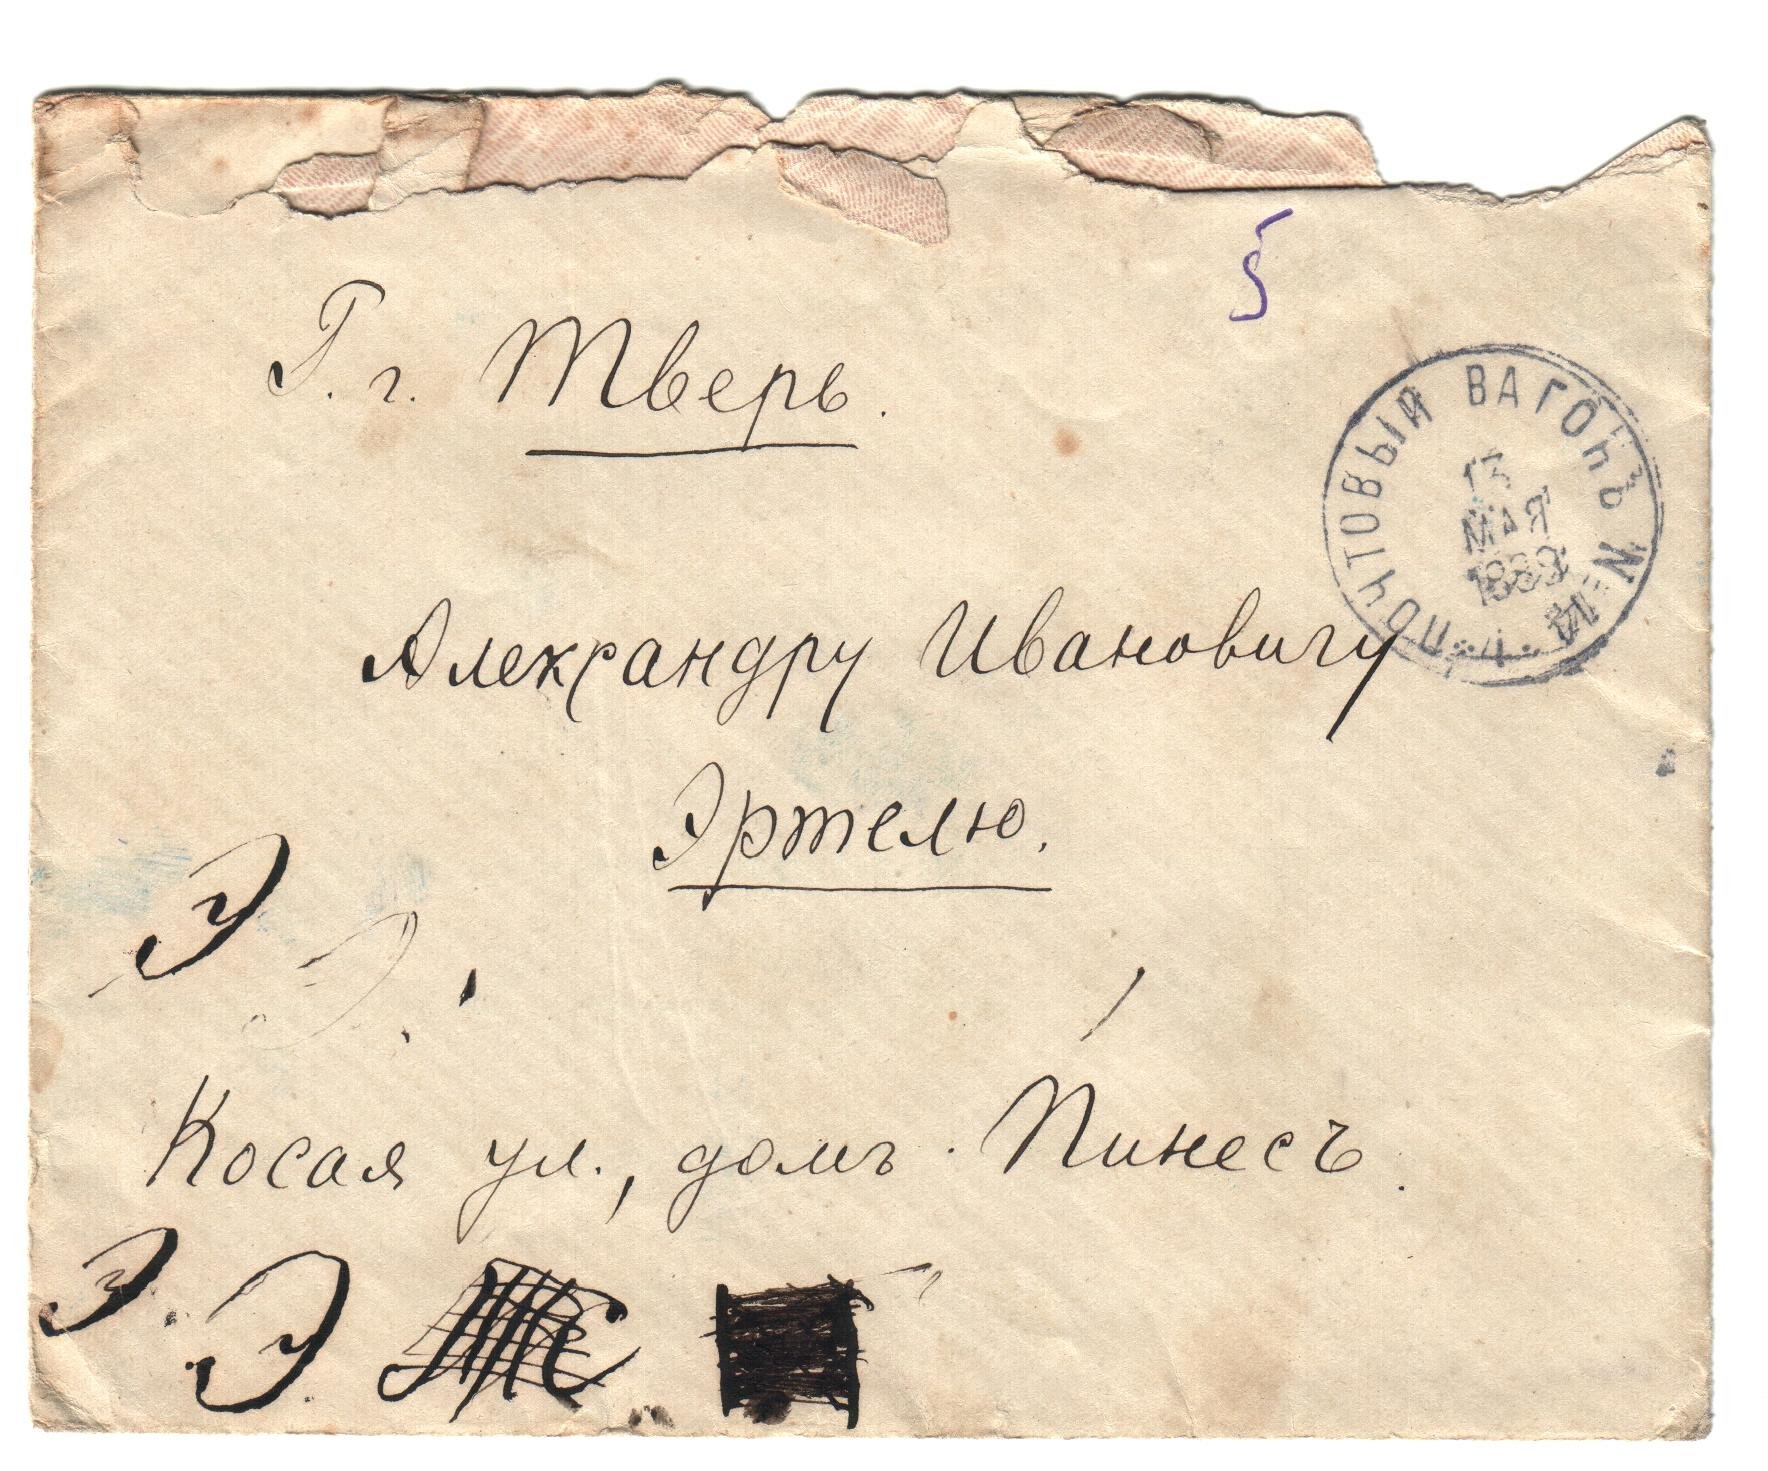 5
Г. г. Тверь.
ПОЧТОВЫЙ ВАГОНЪ №
13
МАЯ
1888
Александру Ивановичу
Эртелю.
Э
Э.
Косая ул., домъ Пинесъ.
Э. Э